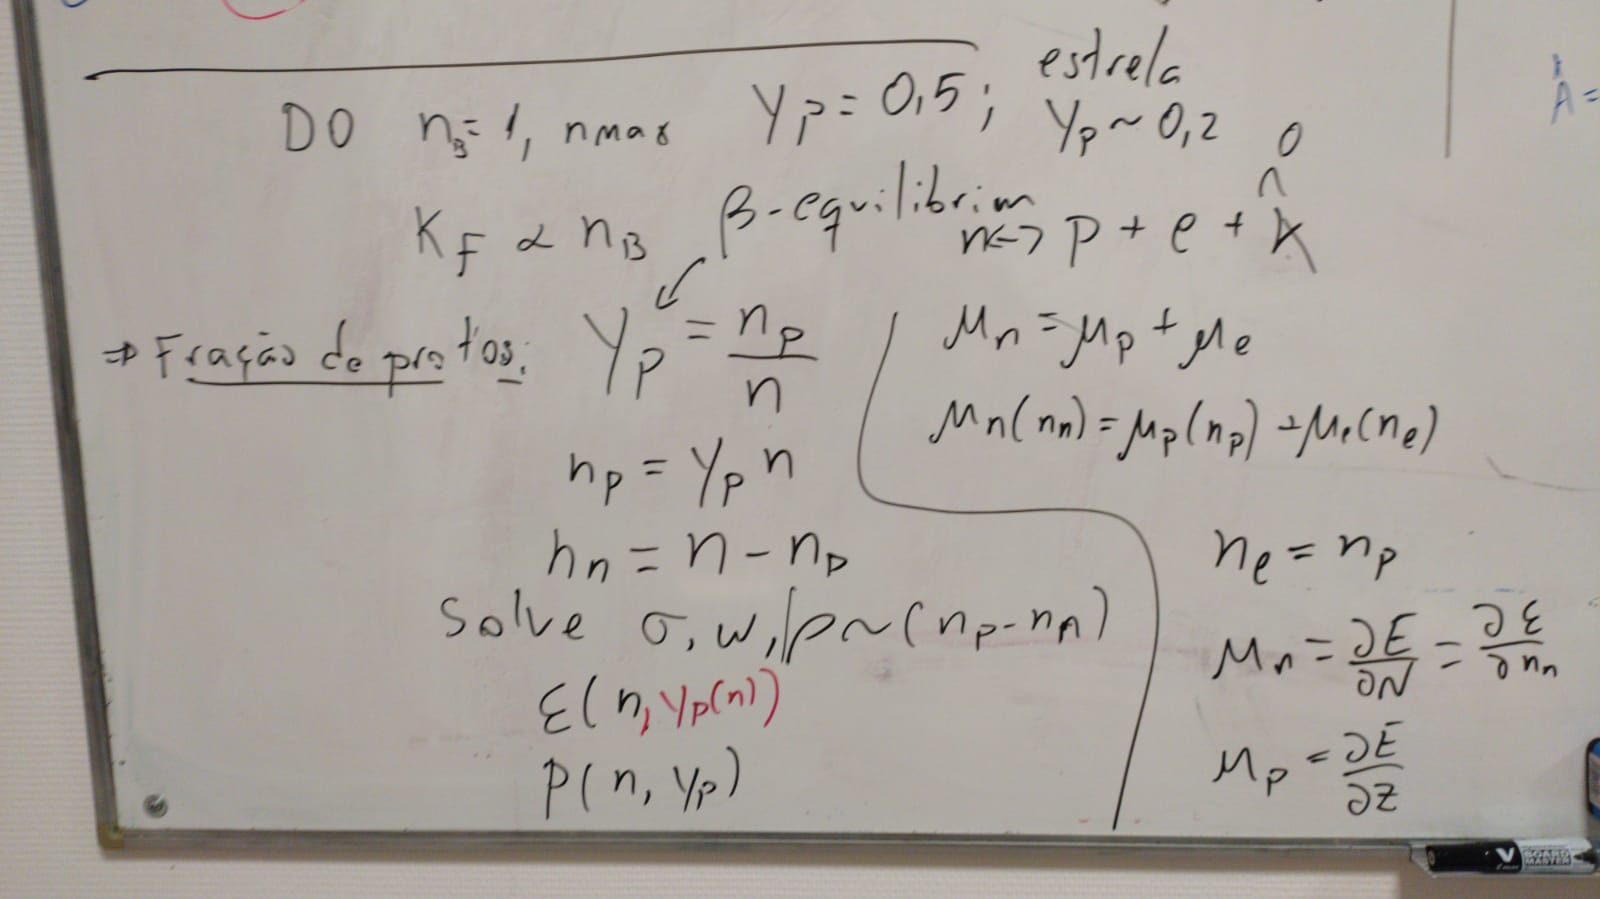 DO n_B = 1, nmax Y_P = 0,5 ; estrela Y_P ~ 0,2
K_F ∝ n_B
β-equilibrim
n <-> p + e +
0
⇒ Fração de protos: Y_P = n_P / n
n_P = Y_P n
n_n = n - n_P
Solve σ, ω, ρ ~ (n_P - n_n)
ε(n, Y_P(n))
P(n, Y_P)
μ_n = μ_p + μ_e
μ_n(n_n) = μ_p(n_p) + μ_e(n_e)
n_e = n_p
μ_n = ∂E/∂N = ∂ε/∂n_n
μ_p = ∂E/∂Z
A =
V BOARD MASTER